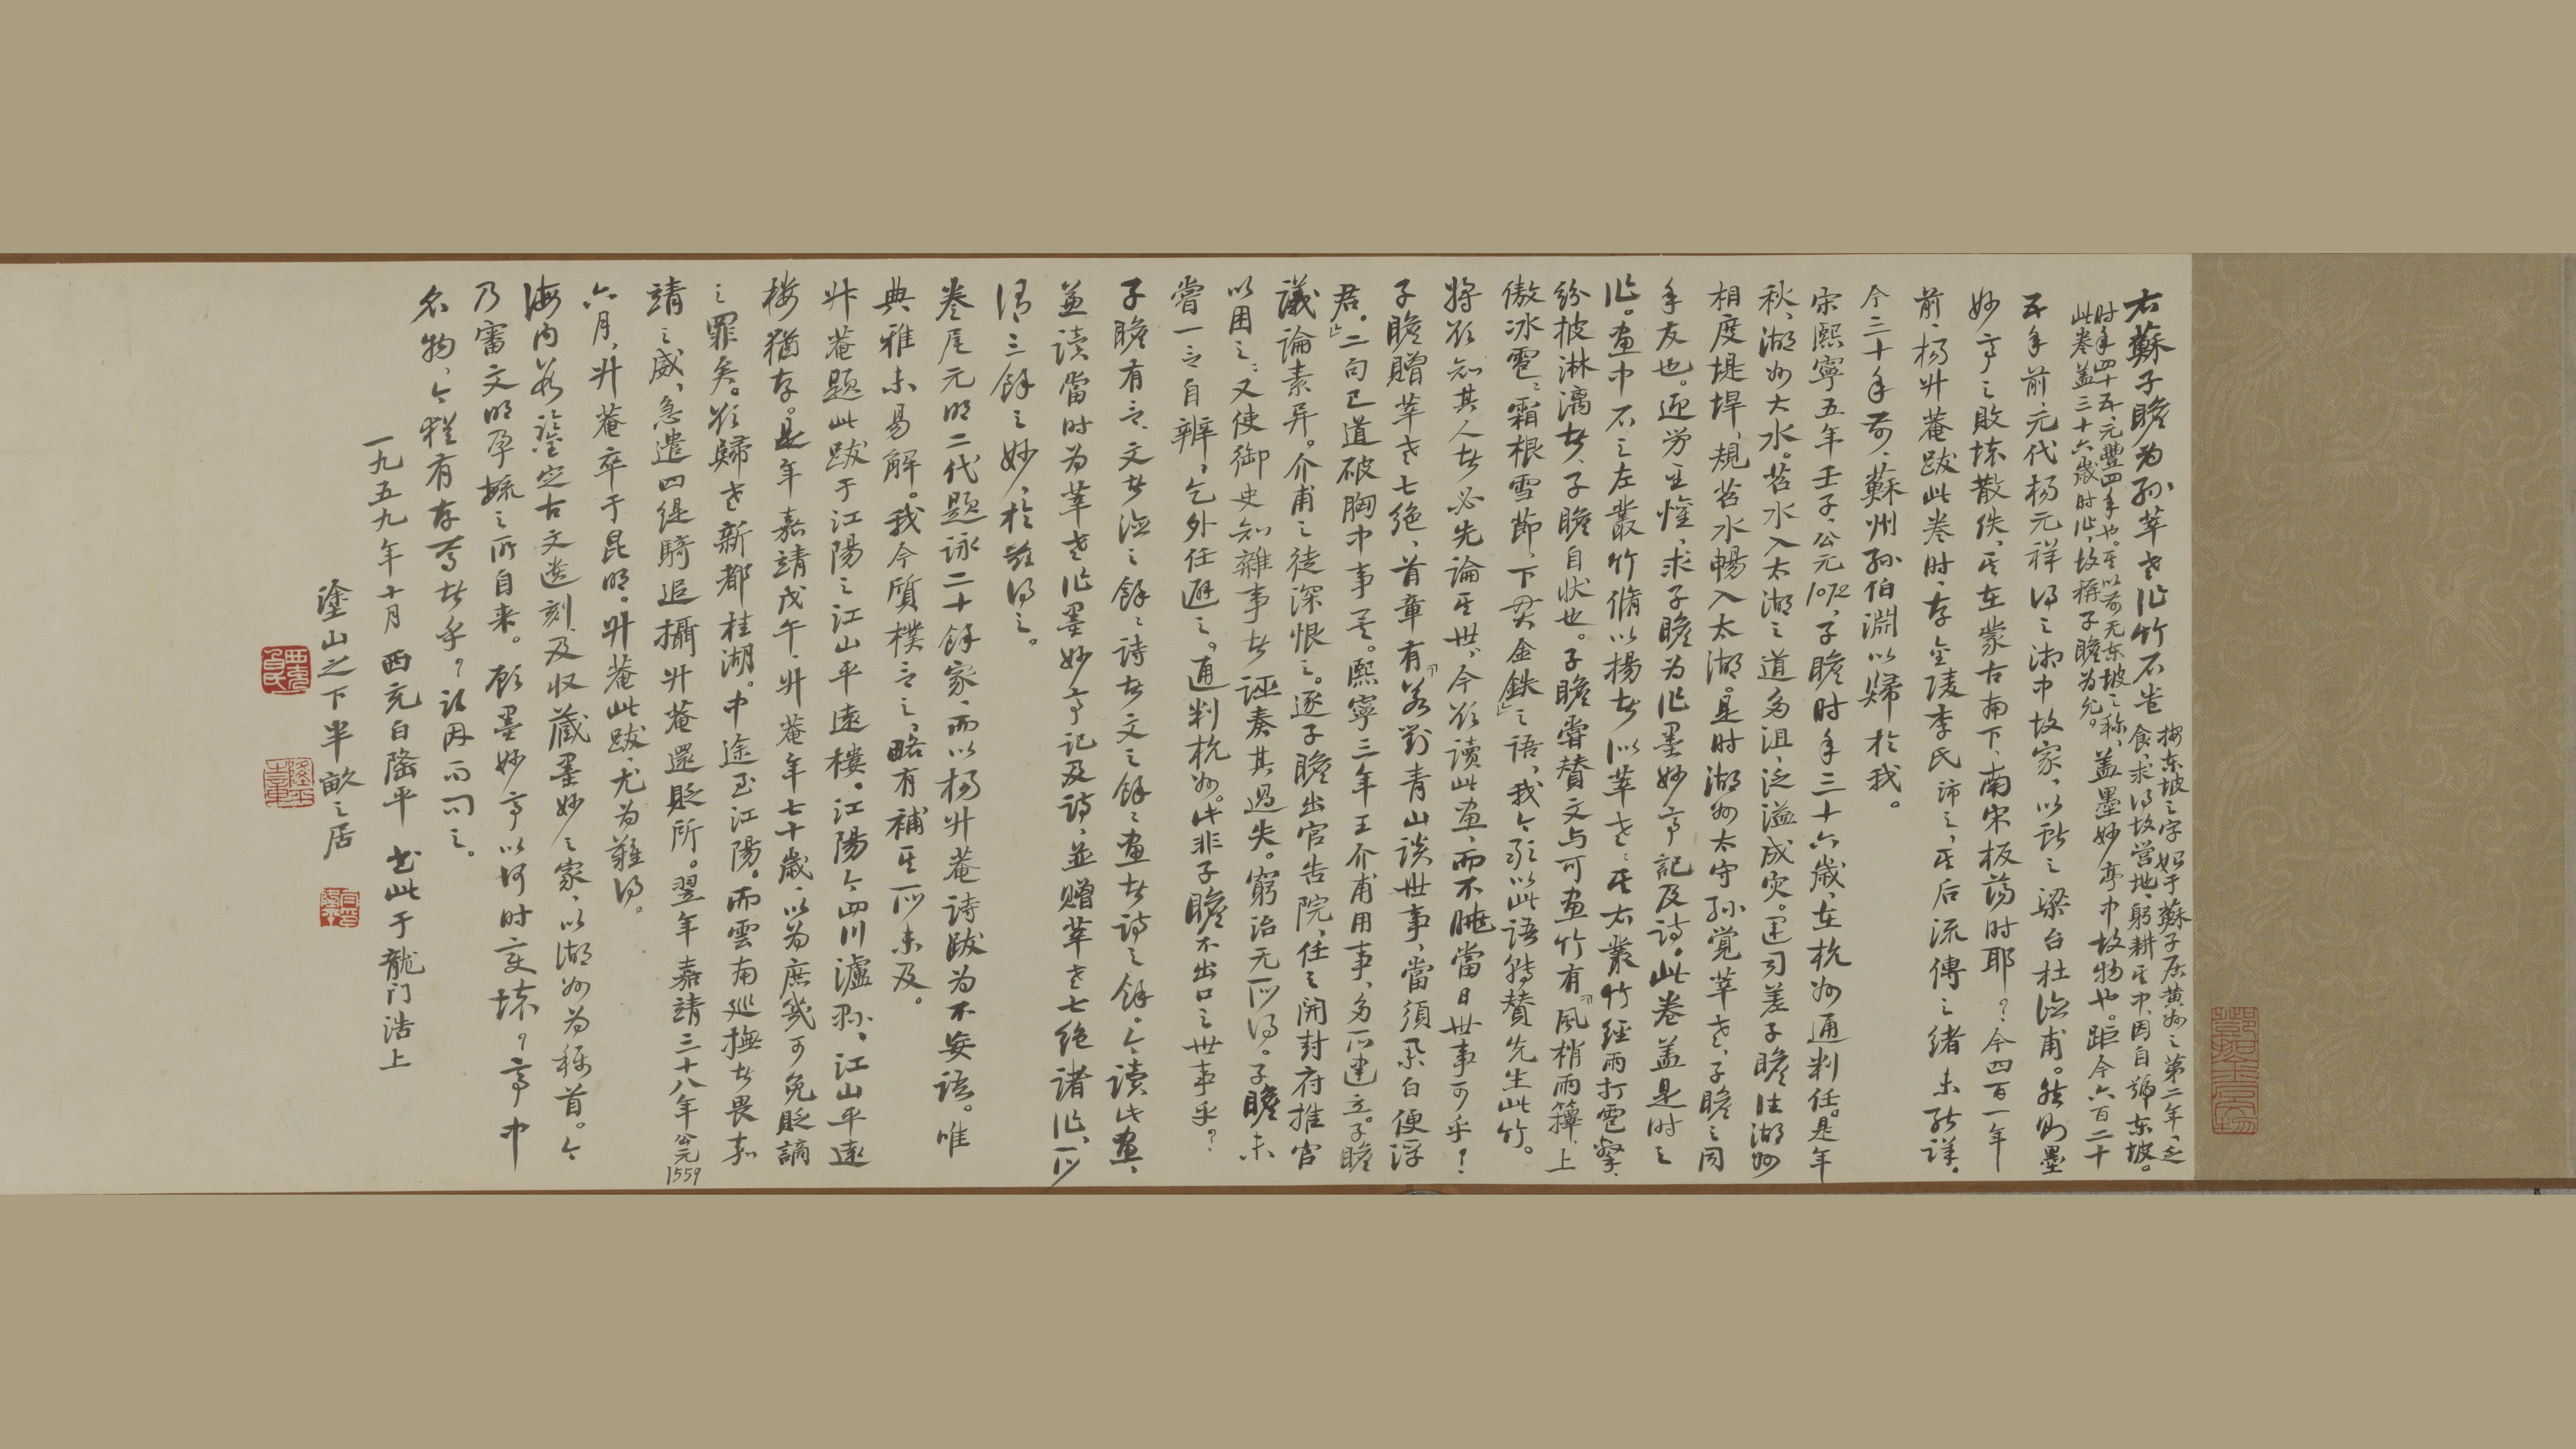 右蘇子瞻为孙莘老作竹石卷
按东坡之字始于蘇子居黄州之第二年,乏
食,求得故营地,躬耕其中,因自號东坡。
时年四十五,元豐四年也。其以前无东坡之称,盖墨妙亭中故物也。距今六百二十
此卷盖三十六歲时作,故稱子瞻为允。
五年前,元代杨元祥得之湘中故家,以旂之梁台杜濟甫。然則墨
妙亭之敗壊散佚,其在蒙古南下,南宋板蕩时耶?今四百一年
前,杨升菴跋此卷时,存金陵李氏沛之,其后流傳之绪未能詳。
今三十年前,蘇州孙伯淵以歸於我。
宋熙寧五年壬子,公元1072,子瞻时年三十六歲,在杭州通判任。是年
秋,湖州大水。苕水入太湖之道多沮,泛溢成灾。运司差子瞻往湖州
相度堤埋,規苕水暢入太湖。是时湖州太守孙觉莘老,子瞻之同
年友也。迎劳至懽,求子瞻为作墨妙亭記及诗。此卷盖是时之
作。画中石之左叢竹脩以揚者似莘老;其右叢竹经雨打雹擊,
纷披淋漓者,子瞻自状也。子瞻嘗贊文与可画竹有「風梢雨籜,上
傲冰雹;霜根雪節,下贯金鐵」之语,我今敢以此语轉贊先生此竹。
将欲知其人者必先論其世,今欲讀此画,而不眺當日世事可乎?
子瞻赠莘老七绝,首章有「若對青山談世事,當須舉白便浮
君。」二句已道破胸中事矣。熙寧三年王介甫用事,多所建立。子瞻
議論素异。介甫之徒深恨之。逐子瞻出官告院,任之開封府推官
以困之;又使御史知雜事者誣奏其過失。窮治无所得。子瞻未
嘗一言自辨,乞外任避之。通判杭州。此非子瞻不出口之世事乎?
子瞻有言,文者德之餘;詩者文之餘;画者詩之餘。今讀此画,
並读當时为莘老作墨妙亭记及詩,並赠莘老七绝诸作,所
得三餘之妙,於兹得之。
卷尾元明二代题詠二十餘家,而以杨升菴诗跋为不妄语。唯
典雅未易解。我今質樸言之,略有補其所未及。
升菴题此跋于江陽之江山平遠樓。江陽今四川瀘县,江山平遠
楼猶存。是年嘉靖戊午,升菴年七十歲,以为庶幾可免貶謫
之罪矣。欲歸老新都桂湖。中途至江陽。而雲南巡撫者畏嘉
靖之威,急遣四缇騎追攝升菴還貶所。翌年嘉靖三十八年公元1559
六月,升菴卒于昆明。升菴此跋,尤为難得。
海内若鉴定古文选刻及收藏墨妙之家,以湖州为称首。今
乃審文明孕毓之所自来。顧墨妙亭以何时变壊?亭中
名物,今猶有存焉者乎?詠再而问之。
一九五九年十月 西充白隆平 书此于龍门浩上
塗山之下半畝之居